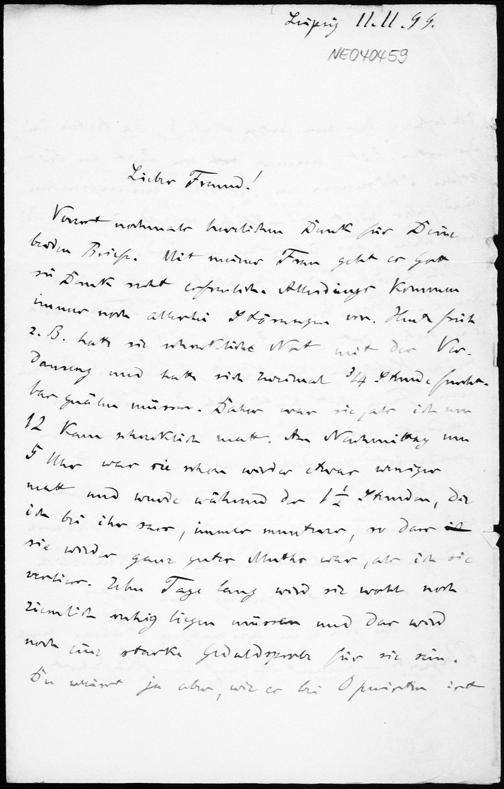 Leipzig 11.11.99.
NE040459
Lieber Freund!
Vorerst nochmals herzlichen Dank für Deine
beiden Briefe. Mit meiner Frau geht es gott
sei Dank recht erfreulich. Allerdings kommen
immer noch allerlei Störungen vor. Heute früh
z. B. hatte sie schreckliche Not mit der Ver-
dauung und hatte sich zweimal 3/4 Stunde furcht-
bar quälen müssen. Daher war sie, als ich um
12 kam schrecklich matt. Am Nachmittag um
5 Uhr war sie schon wieder etwas weniger
matt und wurde während der 1 1/2 Stunden, die
ich bei ihr sass, immer munterer, so dass
sie wieder ganz guten Muthes war, als ich sie
verliess. Zehn Tage lang wird sie wohl noch
ziemlich ruhig liegen müssen und das wird
noch eine starke Geduldsprobe für sie sein.
Du weisst ja aber, wie es bei Operirten ist